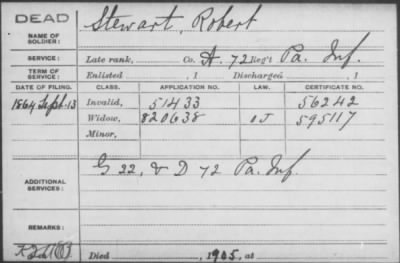 DEAD
NAME OF SOLDIER: Stewart, Robert
SERVICE: Late rank, Co. A. 72 Reg't Pa. Inf.
TERM OF SERVICE: Enlisted , 1 Discharged , 1
DATE OF FILING. CLASS. APPLICATION NO. LAW. CERTIFICATE NO.
1864 Sept. 13 Invalid, 51433 56242
Widow, 820638 OJ 595117
Minor,
ADDITIONAL SERVICES: G 22, & D 72 Pa. Inf.
REMARKS:
Died , 1905, at